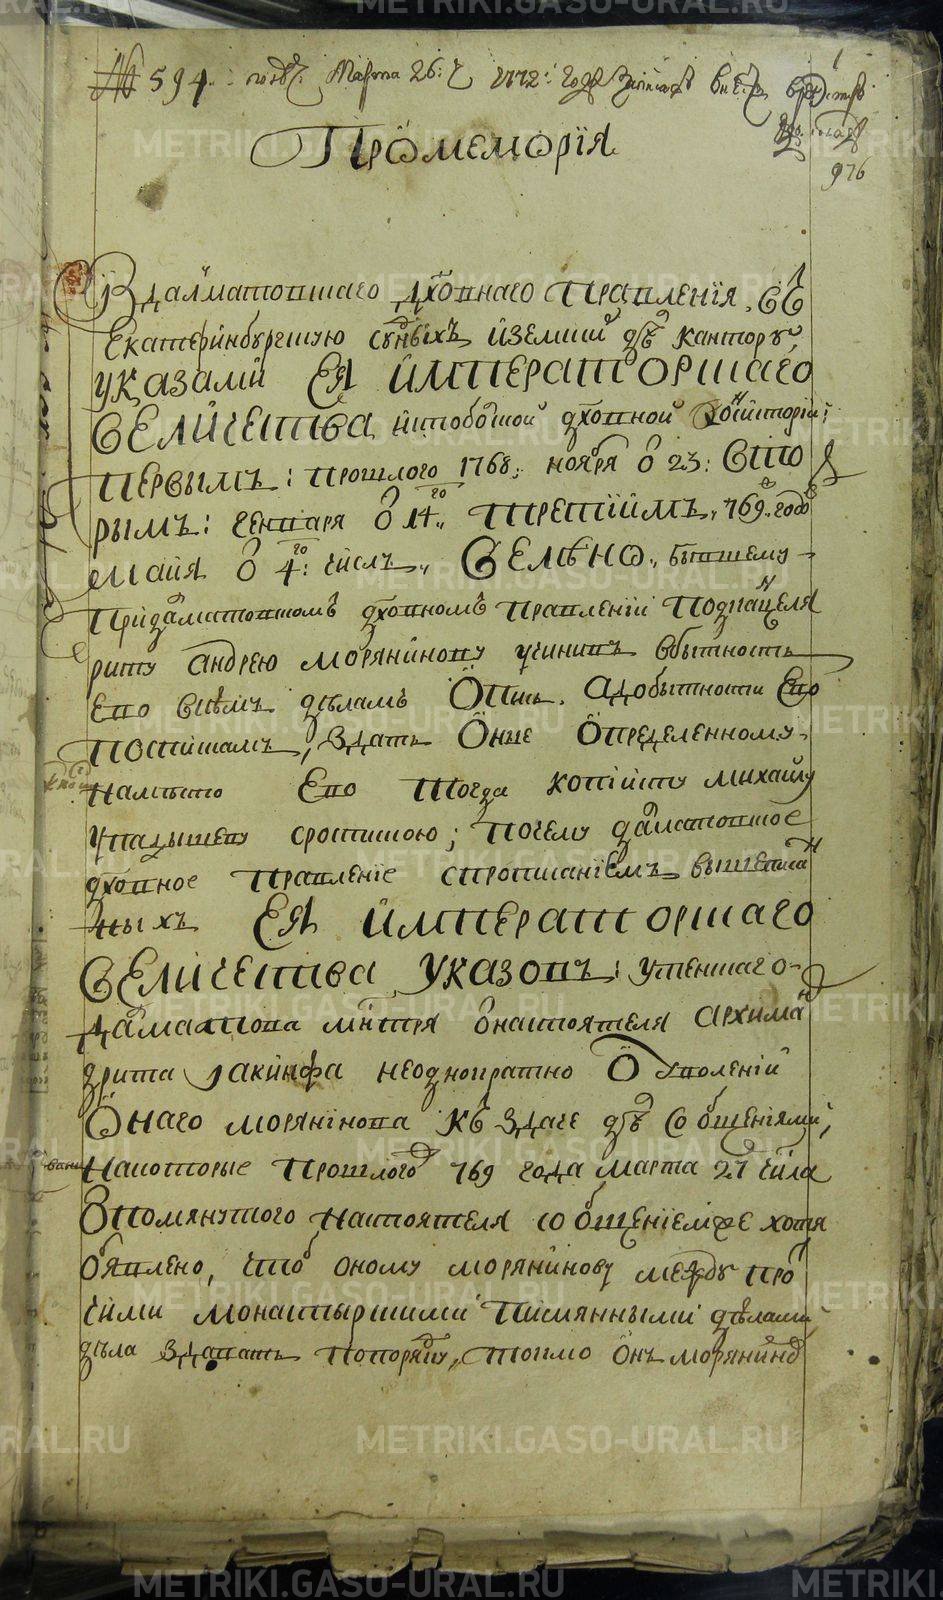 № 594. Марта 26: 1772: году
1
976
Промеморїя
Издалматовскаго дховнаго правленїя, въ
Екатерїнбургскую судныхъ иземскїи дѣ канторꙋ,
указами ЕЯ ИМПЕРАТОРСКАГО
ВЕЛИЧЕСТВА итоболской дховной консисторїи;
первымъ: прошлого 1768: ноября ѿ 23: вто
рымъ: генваря ѿ 14го, третїимъ, 769 году
майя ѿ 4го: числъ, ВЕЛѢНО, бывшему
придалматовскомъ дховномъ правленїи подканцеля
ристу андрею морянинову учинить вбытность
его всѣмъ дѣламъ Опись. адобытности Его
поспискамъ, здать Оные Определенному
наместо Его тогда копїисту михаилу
упадышеву сроспискою; почему далматовское
дховное правленїе спрописанїемъ вышеписан
ныхъ ЕЯ ИМПЕРАТОРСКАГО
ВЕЛИЧЕСТВА УКАЗОВЪ: успенскаго
далматова мнтря Онастоятеля архиман
дрита Iакинфа неоднократно О уволенїи
Онаго морянїнова Къ здаче дѣ сообщенїями,
Накоторые прошлого 769 года марта 21 числа
Ѿпомянутого настоятеля сообщенїемже хотя
обявлено, что оному моряниновꙋ междꙋ про
чими монастырскими писмянными дѣлами
дѣла здавать, токмо Онъ морянинов